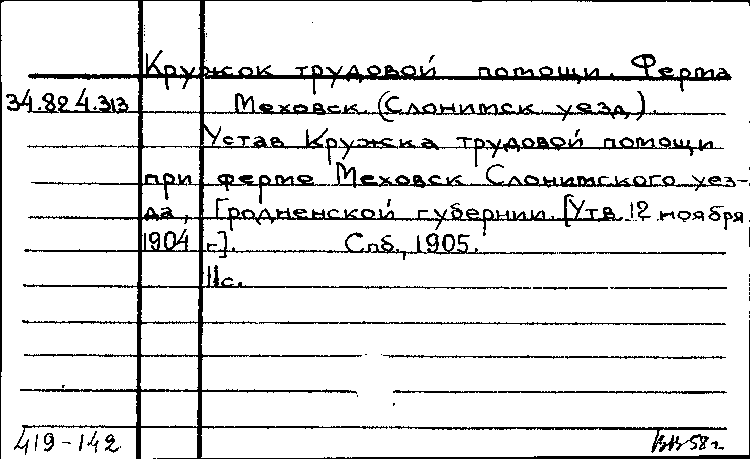 Кружок трудовой помощи. Ферма
34.824.313 Меховск (Слонимск уезд).
Устав Кружка трудовой помощи
при ферме Меховск Слонимского уез-
да, Гродненской губернии. [Утв. 12 ноября
1904 г.]. Спб., 1905.
11с.
419-142 ВВ 58 г.